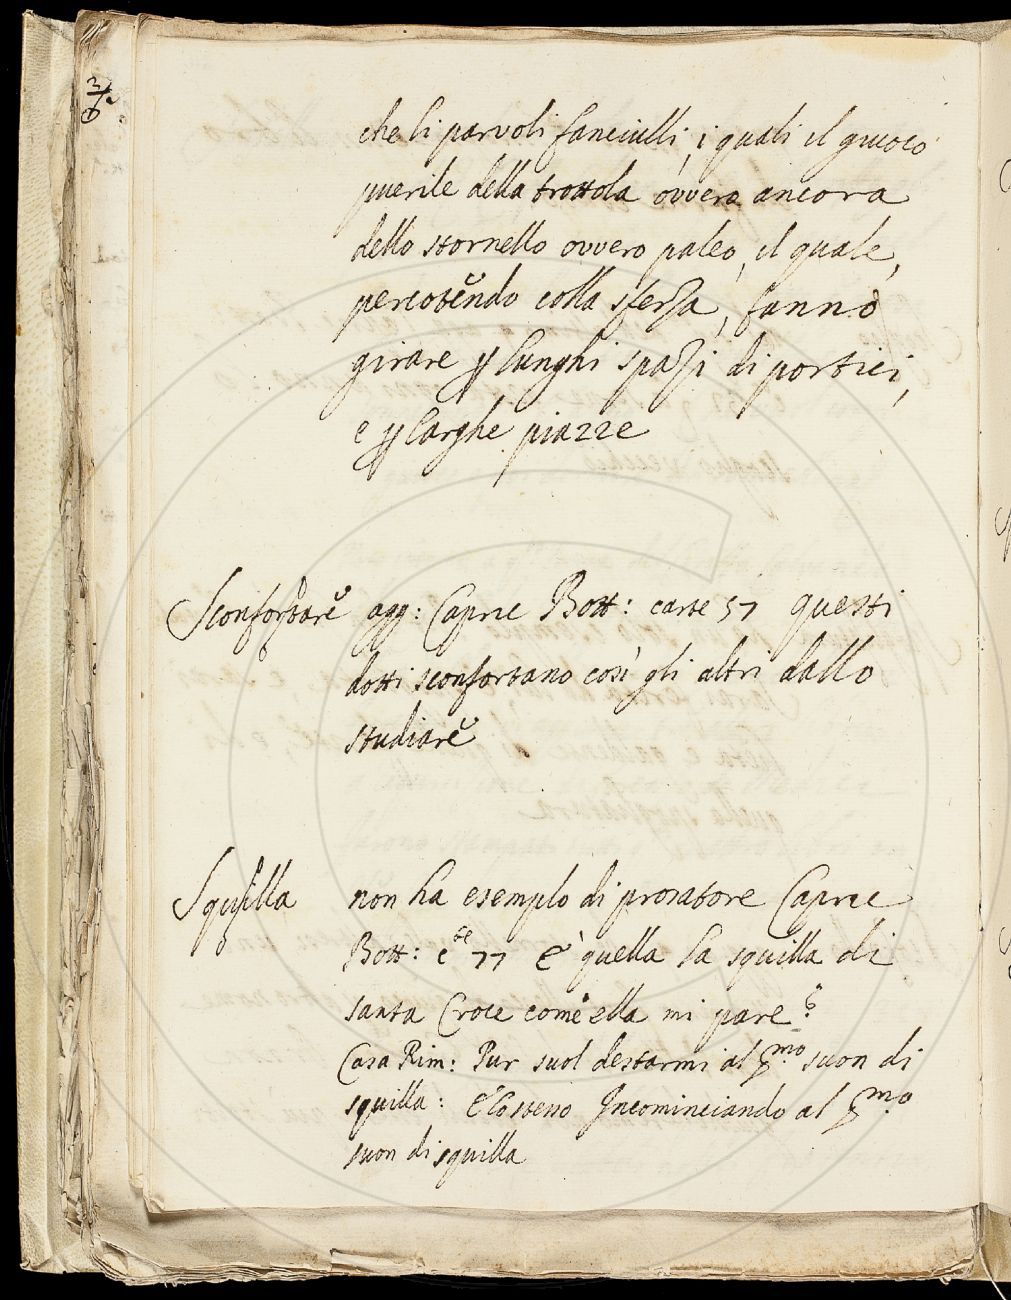 che li parvoli fanciulli, i quali il gwoco
puerile della trottola ovvero ancora
dello stornello ovvero paleo, il quale,
percotendo colla sferza, fanno
girare p lunghi spazi di portici,
e p larghe piazze
Sconfortare agg: Capric Bott: carte 57 questi
dotti sconfortano così gli altri dallo
studiare
Squilla non ha esempio di prosatore Capric
Bott: cte 77 E' quella la squilla di
santa Croce come ella mi pare?
Casa Rim: Pur suol destarmi al pmo suon di
squilla: E lo steno Incominciando al pmo
suon di squilla